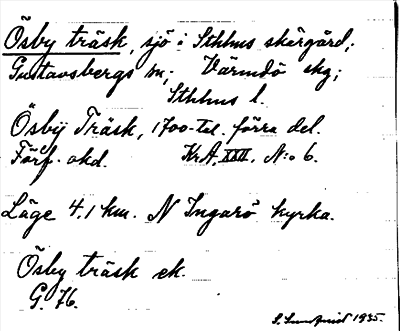 Ösby träsk, sjö i Sthlms skärgård;
Gustavsbergs m; Värmdö skg;
Sthlms l.
Ösbÿ Träsk, 1700-tal. förra del.
Förf. okd. KrA, XXII, N:o 6.
Läge 4,1 km. N Ingarö kyrka.
Ösby träsk ek.
G. 76.
S. Sundqvist 1935.